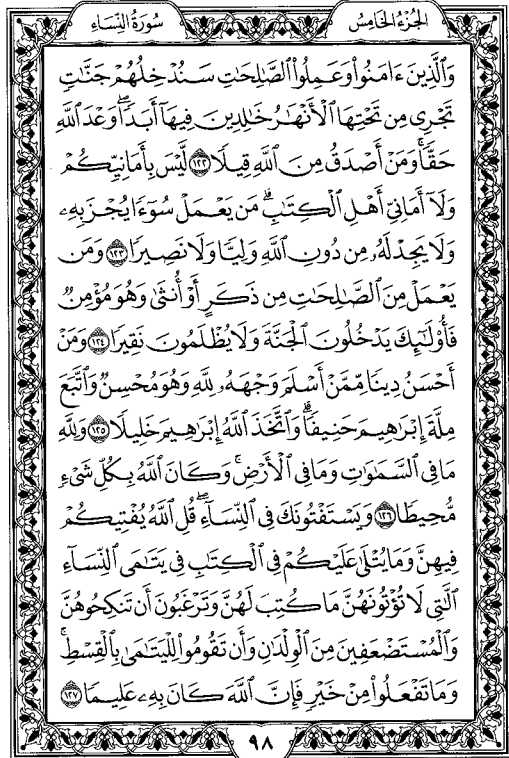 الجُزْءُ الخَامِسُ
سُورَةُ النِّسَاءِ
وَٱلَّذِينَ ءَامَنُوا۟ وَعَمِلُوا۟ ٱلصَّـٰلِحَـٰتِ سَنُدْخِلُهُمْ جَنَّـٰتٍ
تَجْرِى مِن تَحْتِهَا ٱلْأَنْهَـٰرُ خَـٰلِدِينَ فِيهَآ أَبَدًا ۖ وَعْدَ ٱللَّهِ
حَقًّا ۚ وَمَنْ أَصْدَقُ مِنَ ٱللَّهِ قِيلًا ١٢٢ لَّيْسَ بِأَمَانِيِّكُمْ
وَلَآ أَمَانِىِّ أَهْلِ ٱلْكِتَـٰبِ ۗ مَن يَعْمَلْ سُوٓءًا يُجْزَ بِهِۦ
وَلَا يَجِدْ لَهُۥ مِن دُونِ ٱللَّهِ وَلِيًّا وَلَا نَصِيرًا ١٢٣ وَمَن
يَعْمَلْ مِنَ ٱلصَّـٰلِحَـٰتِ مِن ذَكَرٍ أَوْ أُنثَىٰ وَهُوَ مُؤْمِنٌ
فَأُو۟لَـٰٓئِكَ يَدْخُلُونَ ٱلْجَنَّةَ وَلَا يُظْلَمُونَ نَقِيرًا ١٢٤ وَمَنْ
أَحْسَنُ دِينًا مِّمَّنْ أَسْلَمَ وَجْهَهُۥ لِلَّهِ وَهُوَ مُحْسِنٌ وَٱتَّبَعَ
مِلَّةَ إِبْرَٰهِيمَ حَنِيفًا ۗ وَٱتَّخَذَ ٱللَّهُ إِبْرَٰهِيمَ خَلِيلًا ١٢٥ وَلِلَّهِ
مَا فِى ٱلسَّمَـٰوَٰتِ وَمَا فِى ٱلْأَرْضِ ۚ وَكَانَ ٱللَّهُ بِكُلِّ شَىْءٍ
مُّحِيطًا ١٢٦ وَيَسْتَفْتُونَكَ فِى ٱلنِّسَآءِ ۖ قُلِ ٱللَّهُ يُفْتِيكُمْ
فِيهِنَّ وَمَا يُتْلَىٰ عَلَيْكُمْ فِى ٱلْكِتَـٰبِ فِى يَتَـٰمَى ٱلنِّسَآءِ
ٱلَّـٰتِى لَا تُؤْتُونَهُنَّ مَا كُتِبَ لَهُنَّ وَتَرْغَبُونَ أَن تَنكِحُوهُنَّ
وَٱلْمُسْتَضْعَفِينَ مِنَ ٱلْوِلْدَٰنِ وَأَن تَقُومُوا۟ لِلْيَتَـٰمَىٰ بِٱلْقِسْطِ ۚ
وَمَا تَفْعَلُوا۟ مِنْ خَيْرٍ فَإِنَّ ٱللَّهَ كَانَ بِهِۦ عَلِيمًا ١٢٧
٩٨